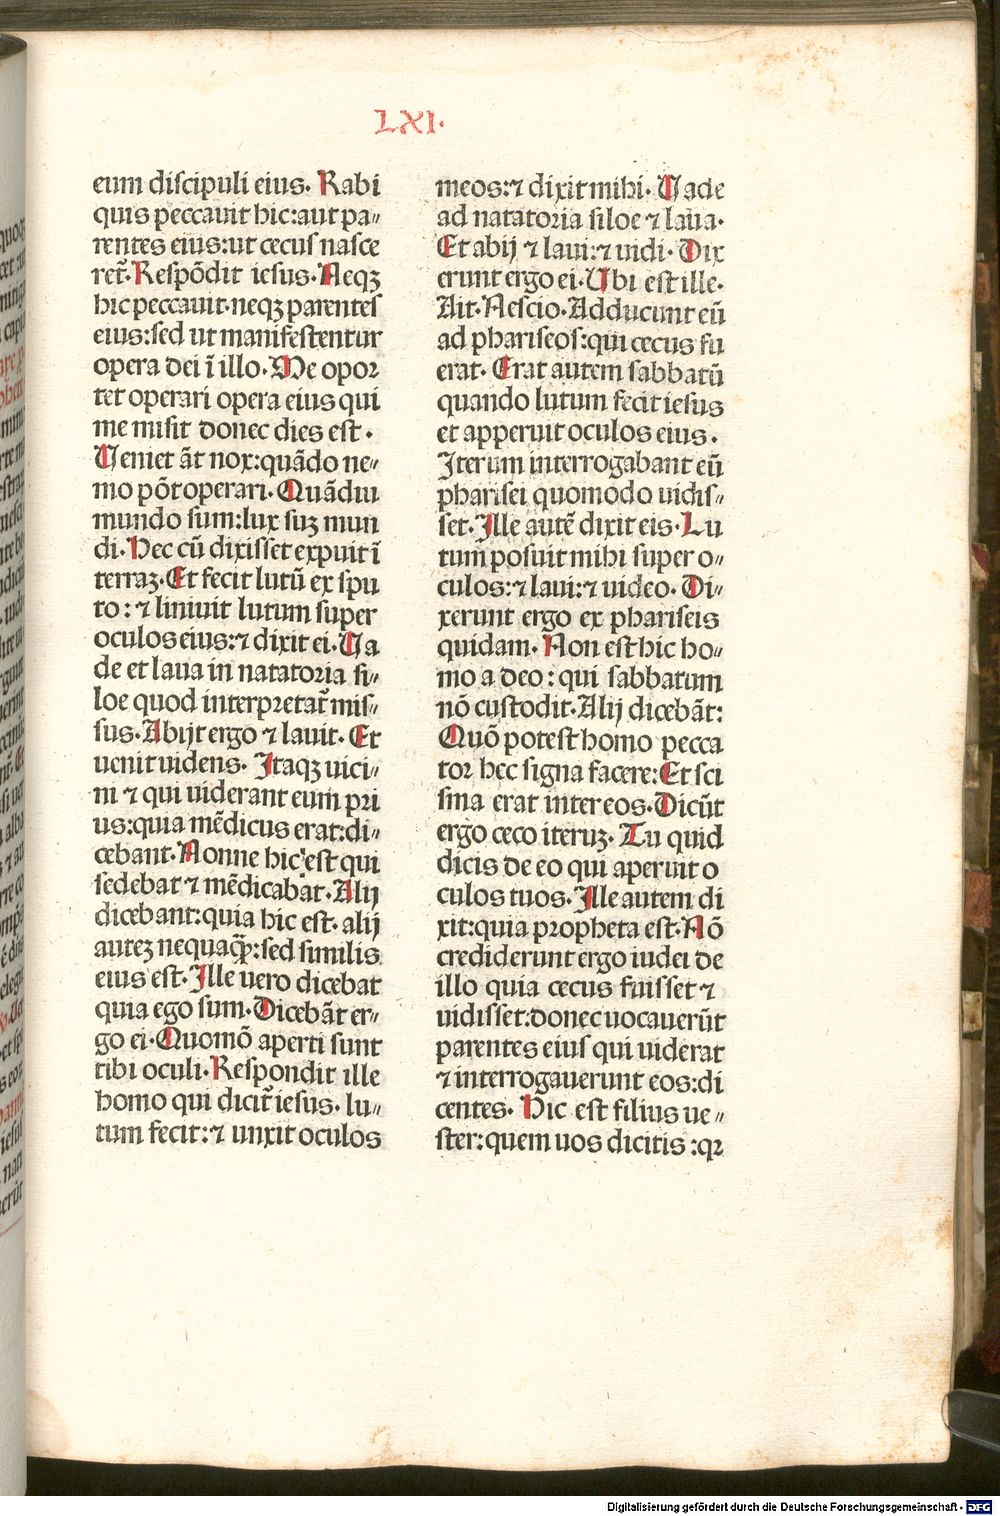 LXI.
eum discipuli eius. Rabi
quis peccauit hic:aut pa⸗
rentes eius:ut cecus nasce
ret̃. Respõdit iesus. Neqꝫ
hic peccauit.neqꝫ parentes
eius:sed ut manifestentur
opera dei ĩ illo. Me opoꝛ
tet operari opera eius qui
me misit donec dies est.
Ueniet ãt nox:quãdo ne⸗
mo põt operari. Quãdiu
mundo sum:lux suꝫ mun
di. Hec cũ dixisset expuit ĩ
terraꝫ. Et fecit lutũ ex spu
to: ⁊ liniuit lutum super
oculos eius:⁊ dixit ei. Ua
de et laua in natatoria si⸗
loe quod interpretat̃ mis⸗
sus. Abijt ergo ⁊ lauit. Et
uenit uidens. Itaqꝫ uici⸗
ni ⁊ qui uiderant eum pri
us:quia mẽdicus erat:di⸗
cebant. Nonne hic est qui
sedebat ⁊ mẽdicabat. Alij
dicebant:quia hic est. alij
auteꝫ nequaꝙ̃:sed similis
eius est. Ille uero dicebat
quia ego sum. Dicebãt er⸗
go ei. Quomõ aperti sunt
tibi oculi. Respondit ille
homo qui dicit̃ iesus. lu⸗
tum fecit:⁊ unxit oculos
meos:⁊ dixit mihi. Uade
ad natatoria siloe ⁊ laua.
Et abij ⁊ laui:⁊ uidi. Dix
erunt ergo ei. Ubi est ille.
Ait. Nescio. Adducunt eũ
ad phariseos:qui cecus fu
erat. Erat autem sabbatũ
quando lutum fecit iesus
et apperuit oculos eius.
Iterum interrogabant eũ
pharisei quomodo uidis⸗
set. Ille autẽ dixit eis. Lu
tum posuit mihi super o⸗
culos:⁊ laui:⁊ uideo. Di⸗
xerunt ergo ex phariseis
quidam. Non est hic ho⸗
mo a deo: qui sabbatum
nõ custodit. Alij dicebãt:
Quõ potest homo pecca
tor hec signa facere: Et sci
sma erat inter eos. Dicũt
ergo ceco iteruꝫ. Tu quid
dicis de eo qui aperuit o
culos tuos. Ille autem di
xit:quia propheta est. Nõ
crediderunt ergo iudei de
illo quia cecus fuisset ⁊
uidisset:donec uocauerũt
parentes eius qui uiderat
⁊ interrogauerunt eos:di
centes. Hic est filius ue⸗
ster:quem uos dicitis :qꝛ
Digitalisierung gefördert durch die Deutsche Forschungsgemeinschaft - DFG